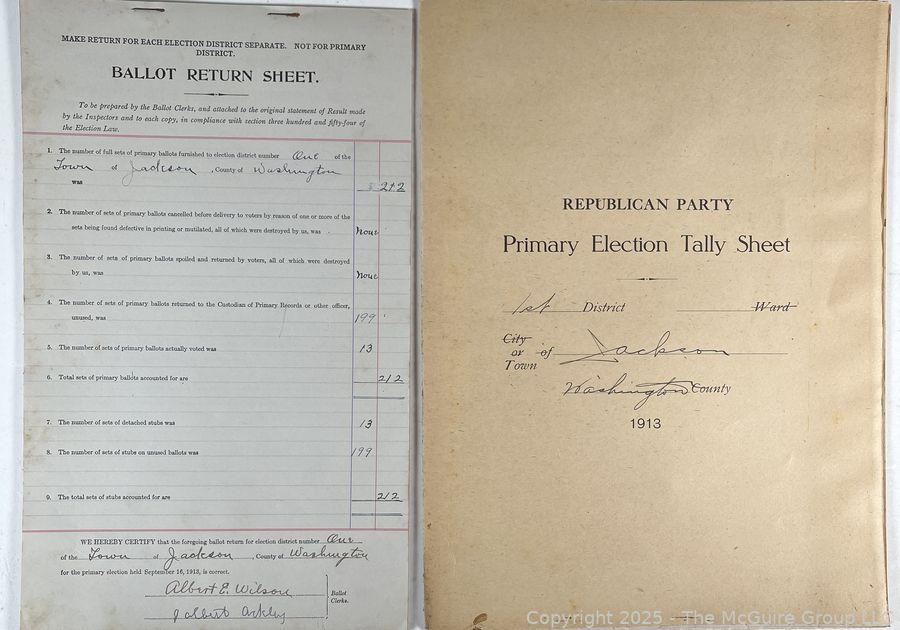 MAKE RETURN FOR EACH ELECTION DISTRICT SEPARATE. NOT FOR PRIMARY
DISTRICT.
BALLOT RETURN SHEET.
To be prepared by the Ballot Clerks, and attached to the original statement of Result made
by the Inspectors and to each copy, in compliance with section three hundred and fifty-four of
the Election Law.
1. The number of full sets of primary ballots furnished to election district number One of the
Town of Jackson, County of Washington
was 212
2. The number of sets of primary ballots cancelled before delivery to voters by reason of one or more of the
sets being found defective in printing or mutilated, all of which were destroyed by us, was None
3. The number of sets of primary ballots spoiled and returned by voters, all of which were destroyed
by us, was None
4. The number of sets of primary ballots returned to the Custodian of Primary Records or other officer,
unused, was 199
5. The number of sets of primary ballots actually voted was 13
6. Total sets of primary ballots accounted for are 212
7. The number of sets of detached stubs was 13
8. The number of sets of stubs on unused ballots was 199
9. The total sets of stubs accounted for are 212
WE HEREBY CERTIFY that the foregoing ballot return for election district number One
of the Town of Jackson, County of Washington
for the primary election held September 16, 1913, is correct.
Albert E. Wilson
Ballot
Clerks.
REPUBLICAN PARTY
Primary Election Tally Sheet
1st District Ward
City
or of Jackson
Town
Washington County
1913
Copyright 2025 - The McGuire Group LLC